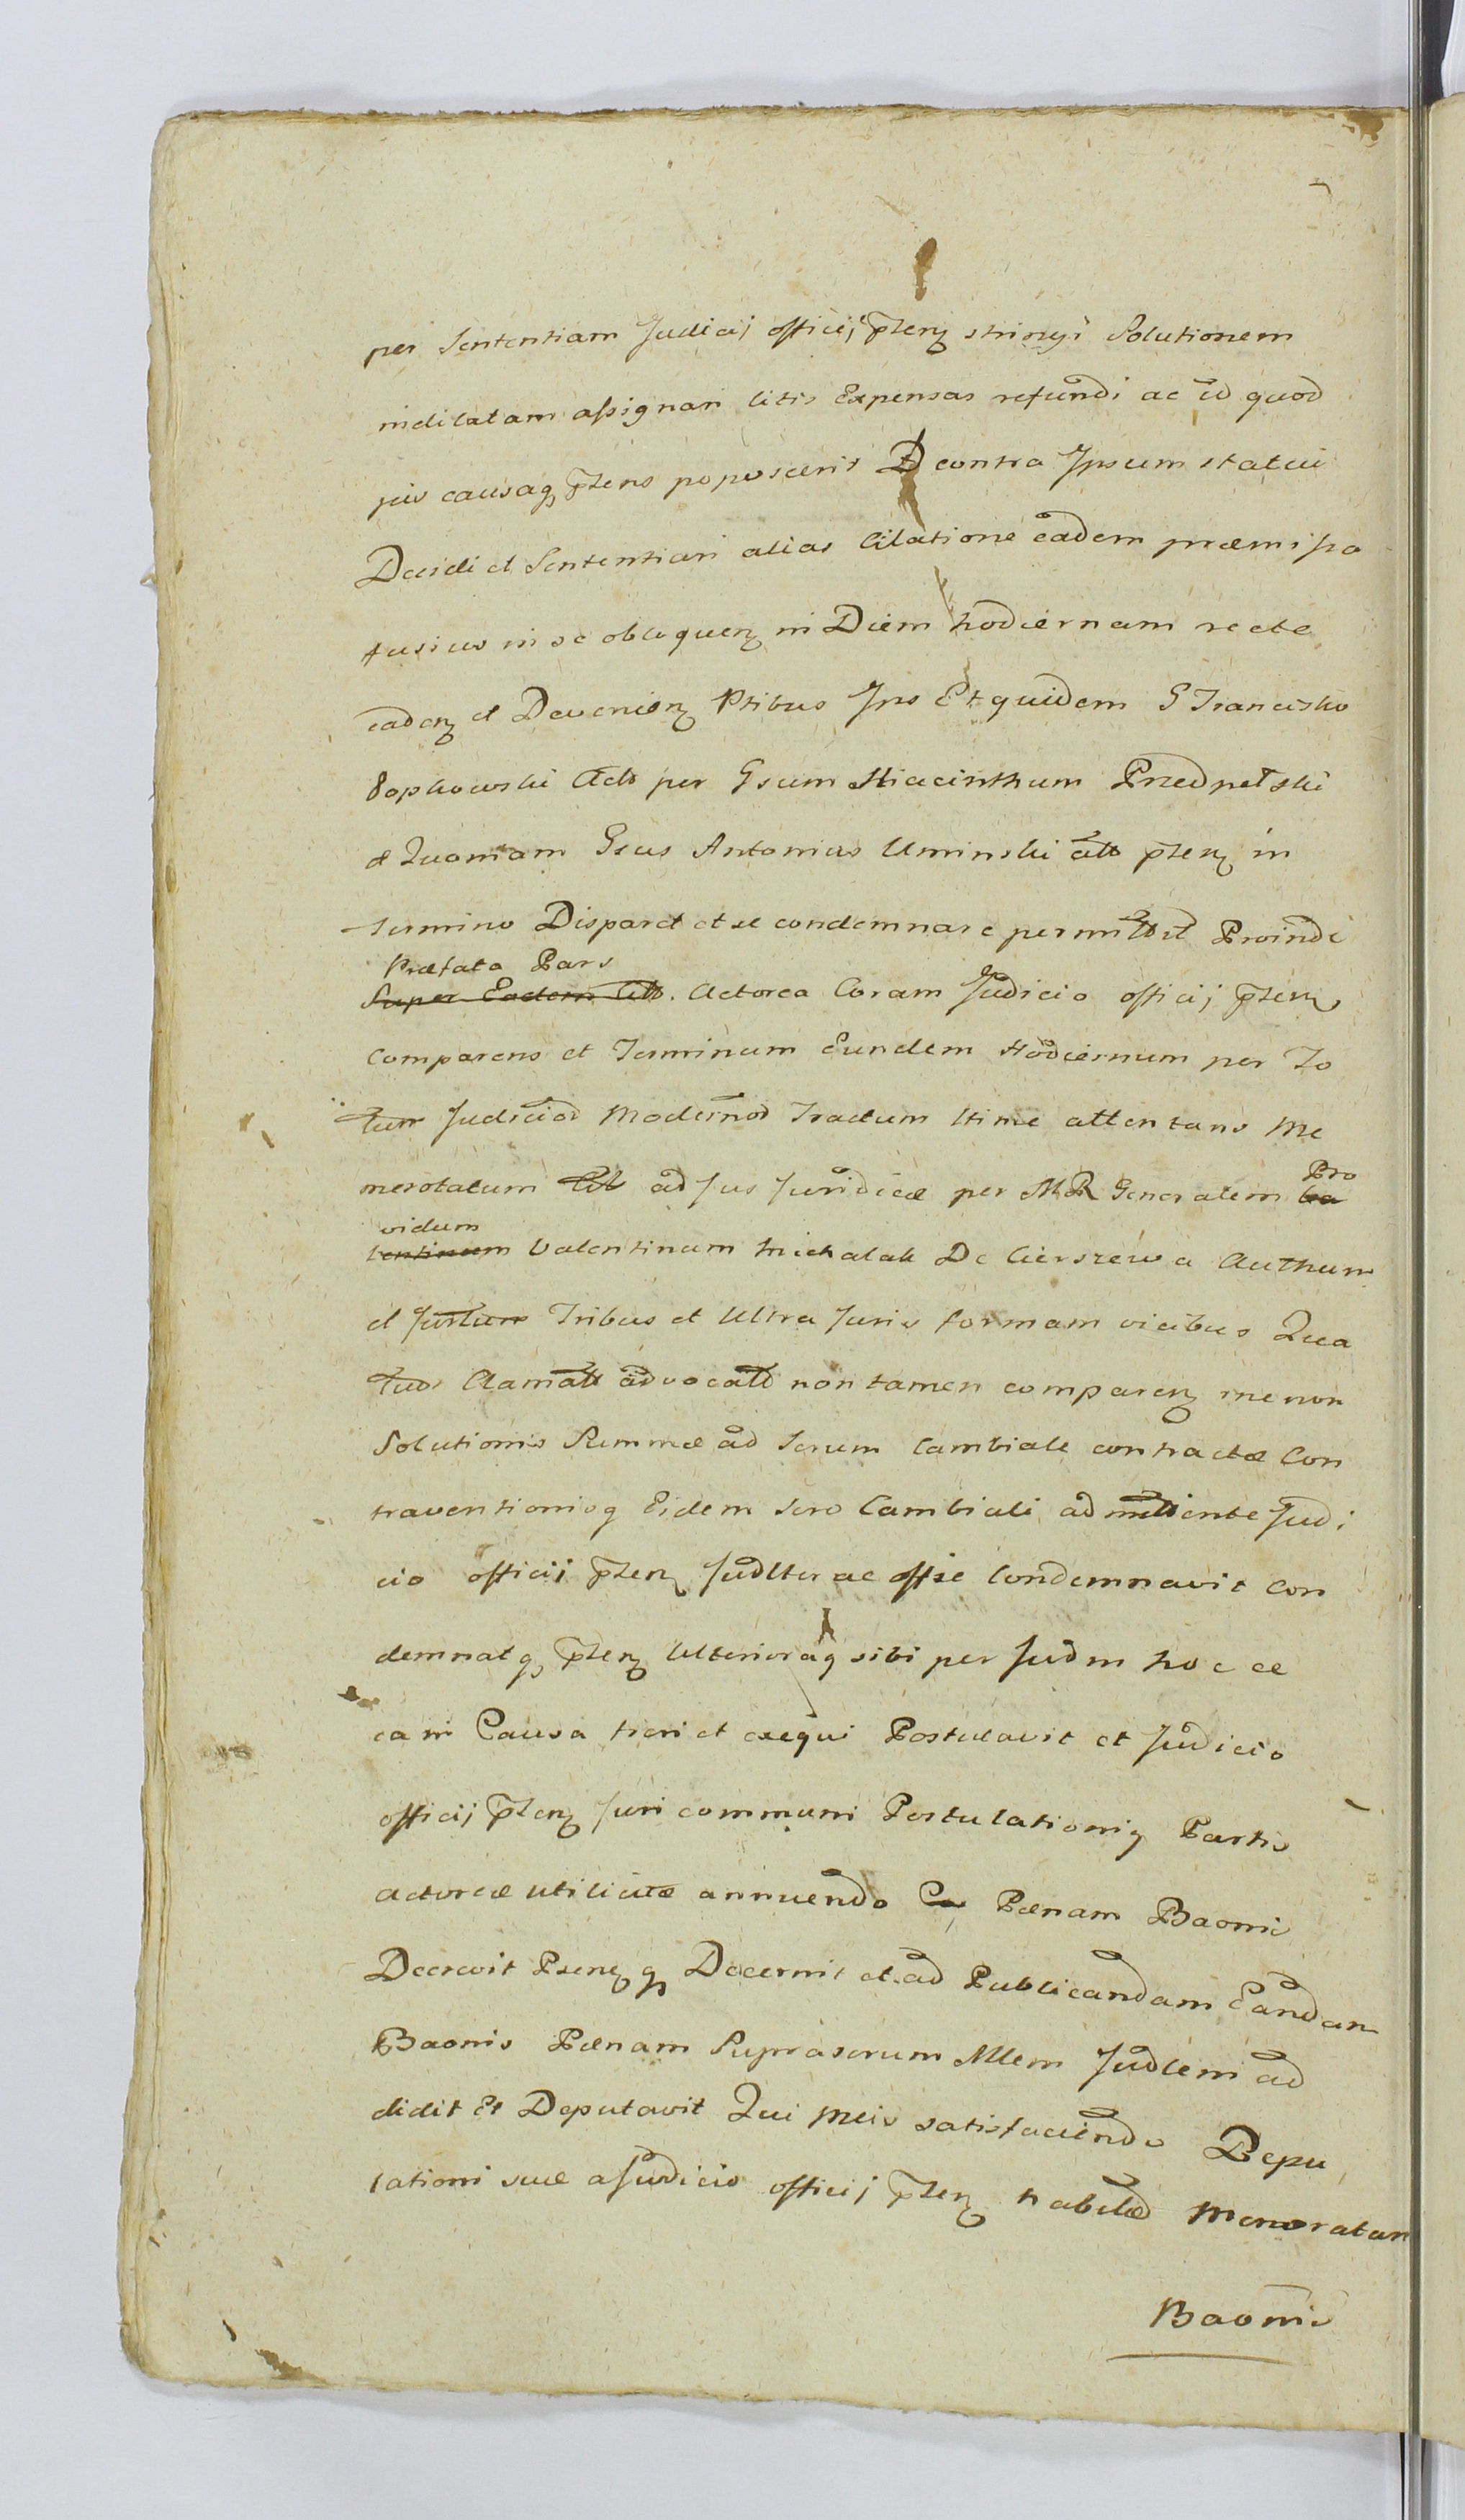 per Sententiam Judicij officij pzterz stringi Solutionem
indilatam assignari litis Expensas refundi ac id quod
jus causaq pztens poposcerit D contra Ipsum statui
Decidi et Sententiari alias Citatione eadem præmissa
fusius in se obloquenz in Diem hodiernam recte
cadenz et Devenienz Ptibus Ips Et quidem G Francisko
Sopkowski Acto per Gsum Hiacinthum Przedpełski
et Quoniam Gsus Antonius Uminski Citts pztenz in
termino Disparet et se condemnare permittit Proinde
Præfata Pars
Super Eadem Citt. Actorea Coram Judicio officij pztenz
Comparens et Terminum Eundem Hodiernum per To
tum Judiciod Modernod Tractum ltime attentans Me
merotatum Citt ad Jus Juridice per M R Generalem Pro
vidum
Valentinum Michalak De Cierszewa Authum
et Jurtum Tribus et Ultra Juris formam vicibus Qua
tuor Clamatt advocatt non tamen comparenz ine non
Solutionis Summæ ad Scrum Cambiale contractæ Con
traventionisq Eidem Scro Cambiali admittente Judi
cio officij pztenz Judlter ac offse Condemnavit Con
demnatq pztenz Ulterioraq sibi per Judm hoc ce
ea in Causa fieri et exequi Postulavit et Judicio
officij pztenz Juri communi Postulationiq Partis
actoreæ utilicitæ annuendo Ca Pænam Baonis
Decrevit Psenzq Decernit et ad Publicandam Eandam
Baonis Pænam Suprascrum Mlem Judlem ad
didit Et Deputavit Qui Meis satisfaciendo Depu
tationi suæ a Judicio officij pztenz habitæ Memoratam
Baonis